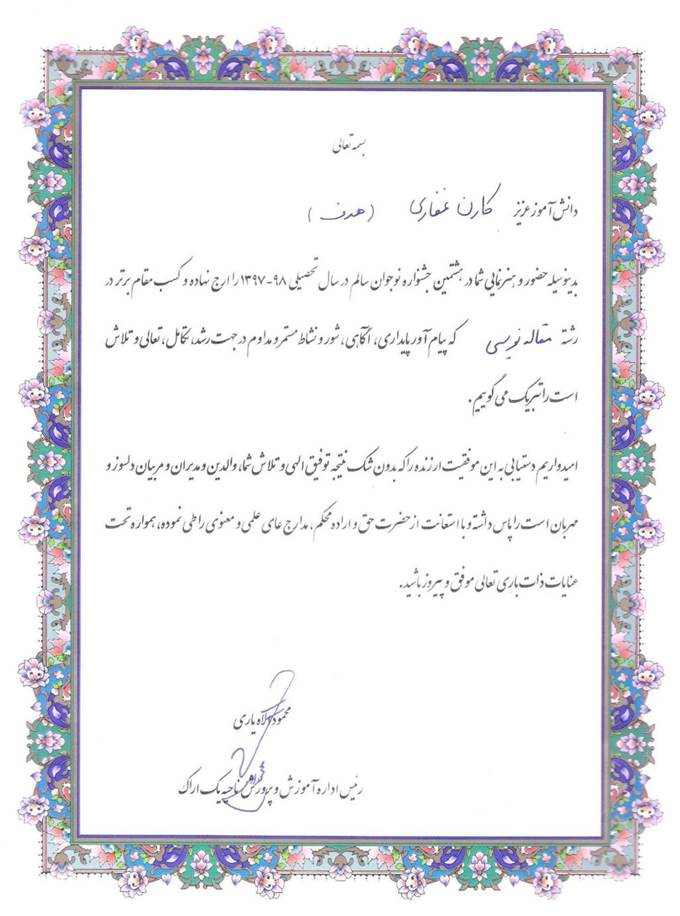 بسمه تعالی
دانش آموز عزیز کارن غفاری (هدف)
بدینوسیله حضور و هنرنمایی شما در هشتمین جشنواره نوجوان سالم در سال تحصیلی ۹۸-۱۳۹۷ را ارج نهاده و کسب مقام برتر در
رشته مقاله نویسی که پیام آور پایداری، آگاهی، شور و نشاط مستمر و مداوم در جهت رشد، تکامل، تعالی و تلاش
است را تبریک می گوییم.
امیدواریم دستیابی به این موفقیت ارزنده را که بدون شک نتیجه توفیق الهی و تلاش شما، والدین و مدیران و مربیان دلسوز و
مهربان است را پاس داشته و با استعانت از حضرت حق و اراده محکم، مدارج عای علمی و معنوی را طی نموده، همواره تحت
عنایات ذات باری تعالی موفق و پیروز باشید.
محمود اله یاری
رئیس اداره آموزش و پرورش ناحیه یک اراک